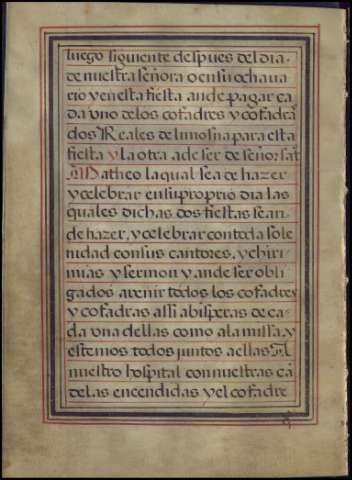 luego siguiente despues del dia.
de nuestra señora o en su ochaua
rio y en esta fiesta an de pagar ca
da vno de los cofadres y cofadra
dos Reales de limosna para esta
fiesta y la otra a de ser de señor sāt
Matheo la qual se a de hazer
y celebrar en su proprio dia las
quales dichas dos fiestas se an.
de hazer, y celebrar con toda sole
nidad con sus cantores, y chiri
mias y sermon y an de ser obli
gados a venir todos los cofadres
y cofadras assi a bisperas de ca
da vna dellas como a la missa, y
estemos todos juntos a ellas
nuestro hospital con nuestras cā
delas encendidas y el cofadre